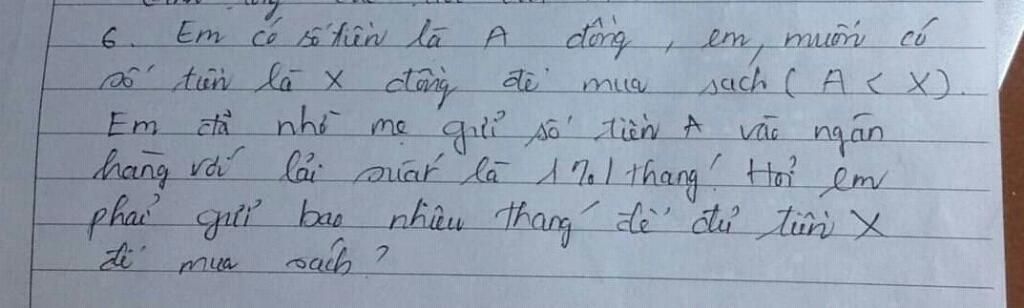 6. Em có số tiền là A đồng, em, muốn có
số tiền là X đồng để mua sách (A < X).
Em đã nhờ mẹ gửi số tiền A vào ngân
hàng với lãi suất là 1%/tháng. Hỏi em
phải gửi bao nhiêu tháng để đủ tiền X
để mua sách?